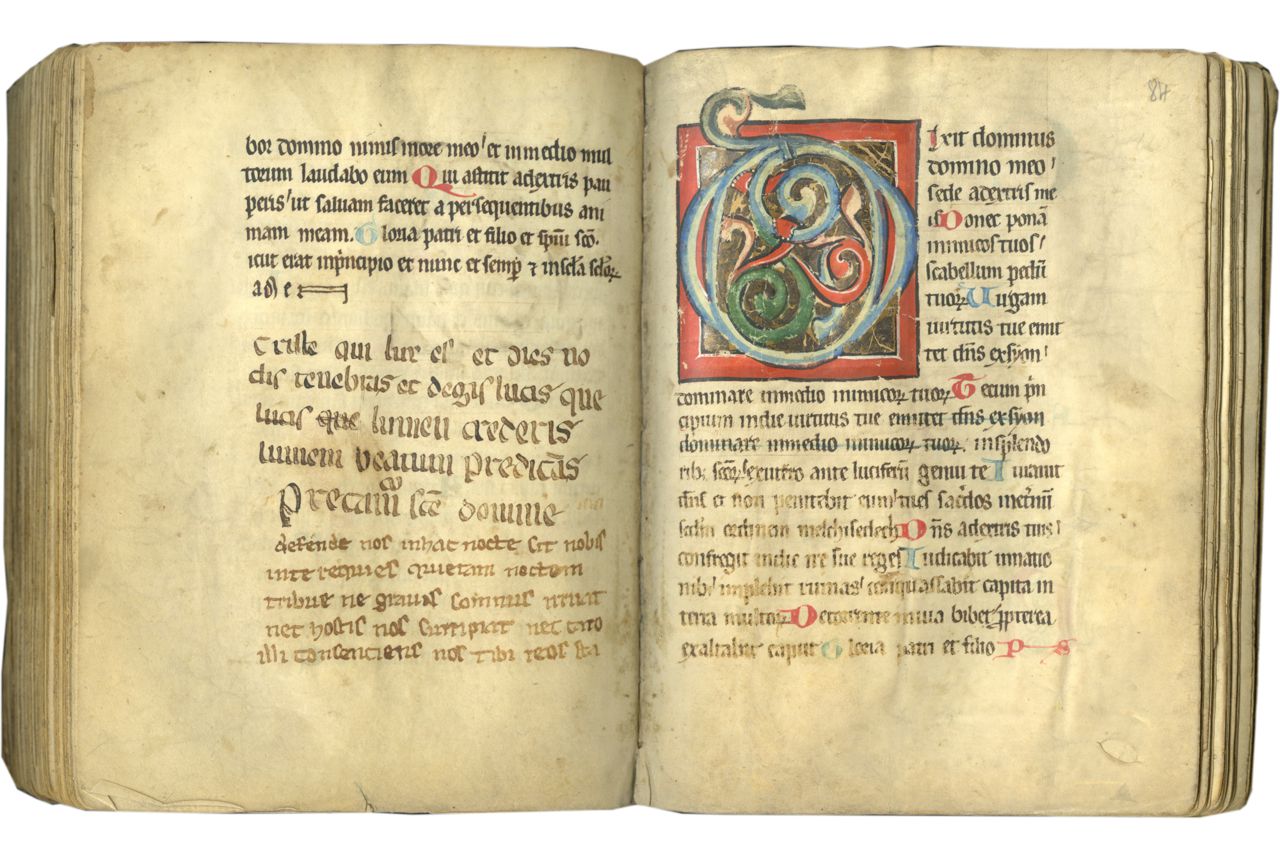 bor domino nimis in ore meo et in medio mul
torum laudabo eum Qui astitit adextris pau
peris ut saluam faceret a persequentibus ani
mam meam. Gloria patri et filio et spiui sco.
icut erat inprincipio et nunc et semp et inscla sclor
criste qui lux es et dies no
ctis tenebras et degis lucis que
lucis que lumen crederis
lumem beatum predicas
Precamur sce domine
defende nos inhac nocte sit nobis
inte requies quietam noctem
tribue ne gravis somnus irruat
nec hostis nos surripiat nec caro
illi consenciens nos tibi reos sta
84
Dixit dominus
domino meo
sede adextris me
is Donec ponā
inimicos tuos
scabellum pedū
tuor Uirgam
uirtutis tue emit
tet dn̄s exsyon
dominare inmedio inimicor tuor Tecum prin
cipium indie uirtutis tue emittet dn̄s exsyon
dominare inmedio inimicor tuor. insplendo
rib; scōr exutero ante luciferū genui te Iurauit
dn̄s et non penitebit eum tu es sacdos ineternū
scdm ordinem melchisedech Dn̄s adextris tuis
confregit indie ire sue reges Iudicabit innatio
nib; implebit ruinas conquassabit capita in
terra multor De torrente inuia bibet ppterea
exaltabit caput Gloria patri et filio ps